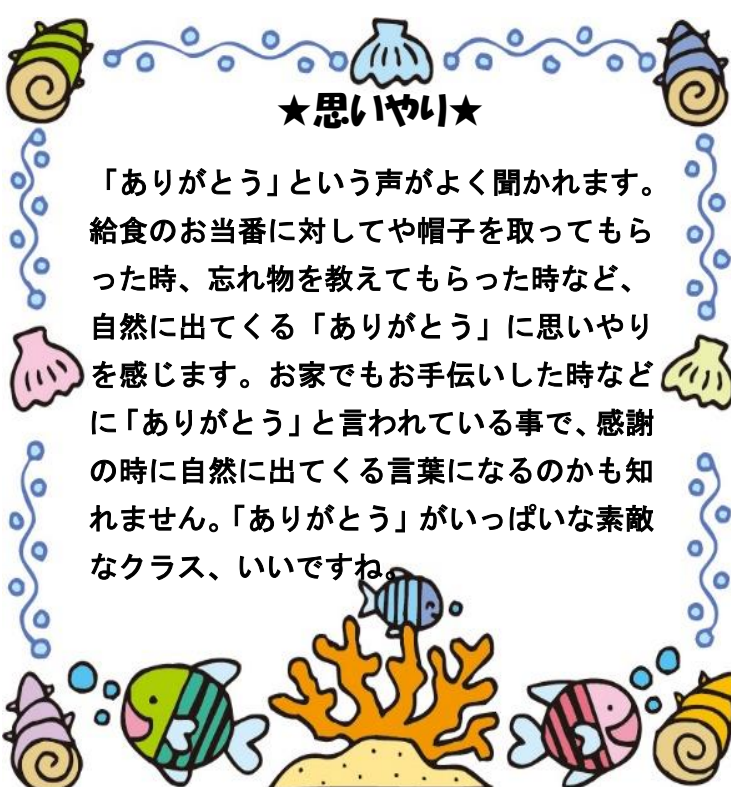 ★思いやり★
「ありがとう」という声がよく聞かれます。
給食のお当番に対してや帽子を取ってもら
った時、忘れ物を教えてもらった時など、
自然に出てくる「ありがとう」に思いやり
を感じます。お家でもお手伝いした時など
に「ありがとう」と言われている事で、感謝
の時に自然に出てくる言葉になるのかも知
れません。「ありがとう」がいっぱいな素敵
なクラス、いいですね。